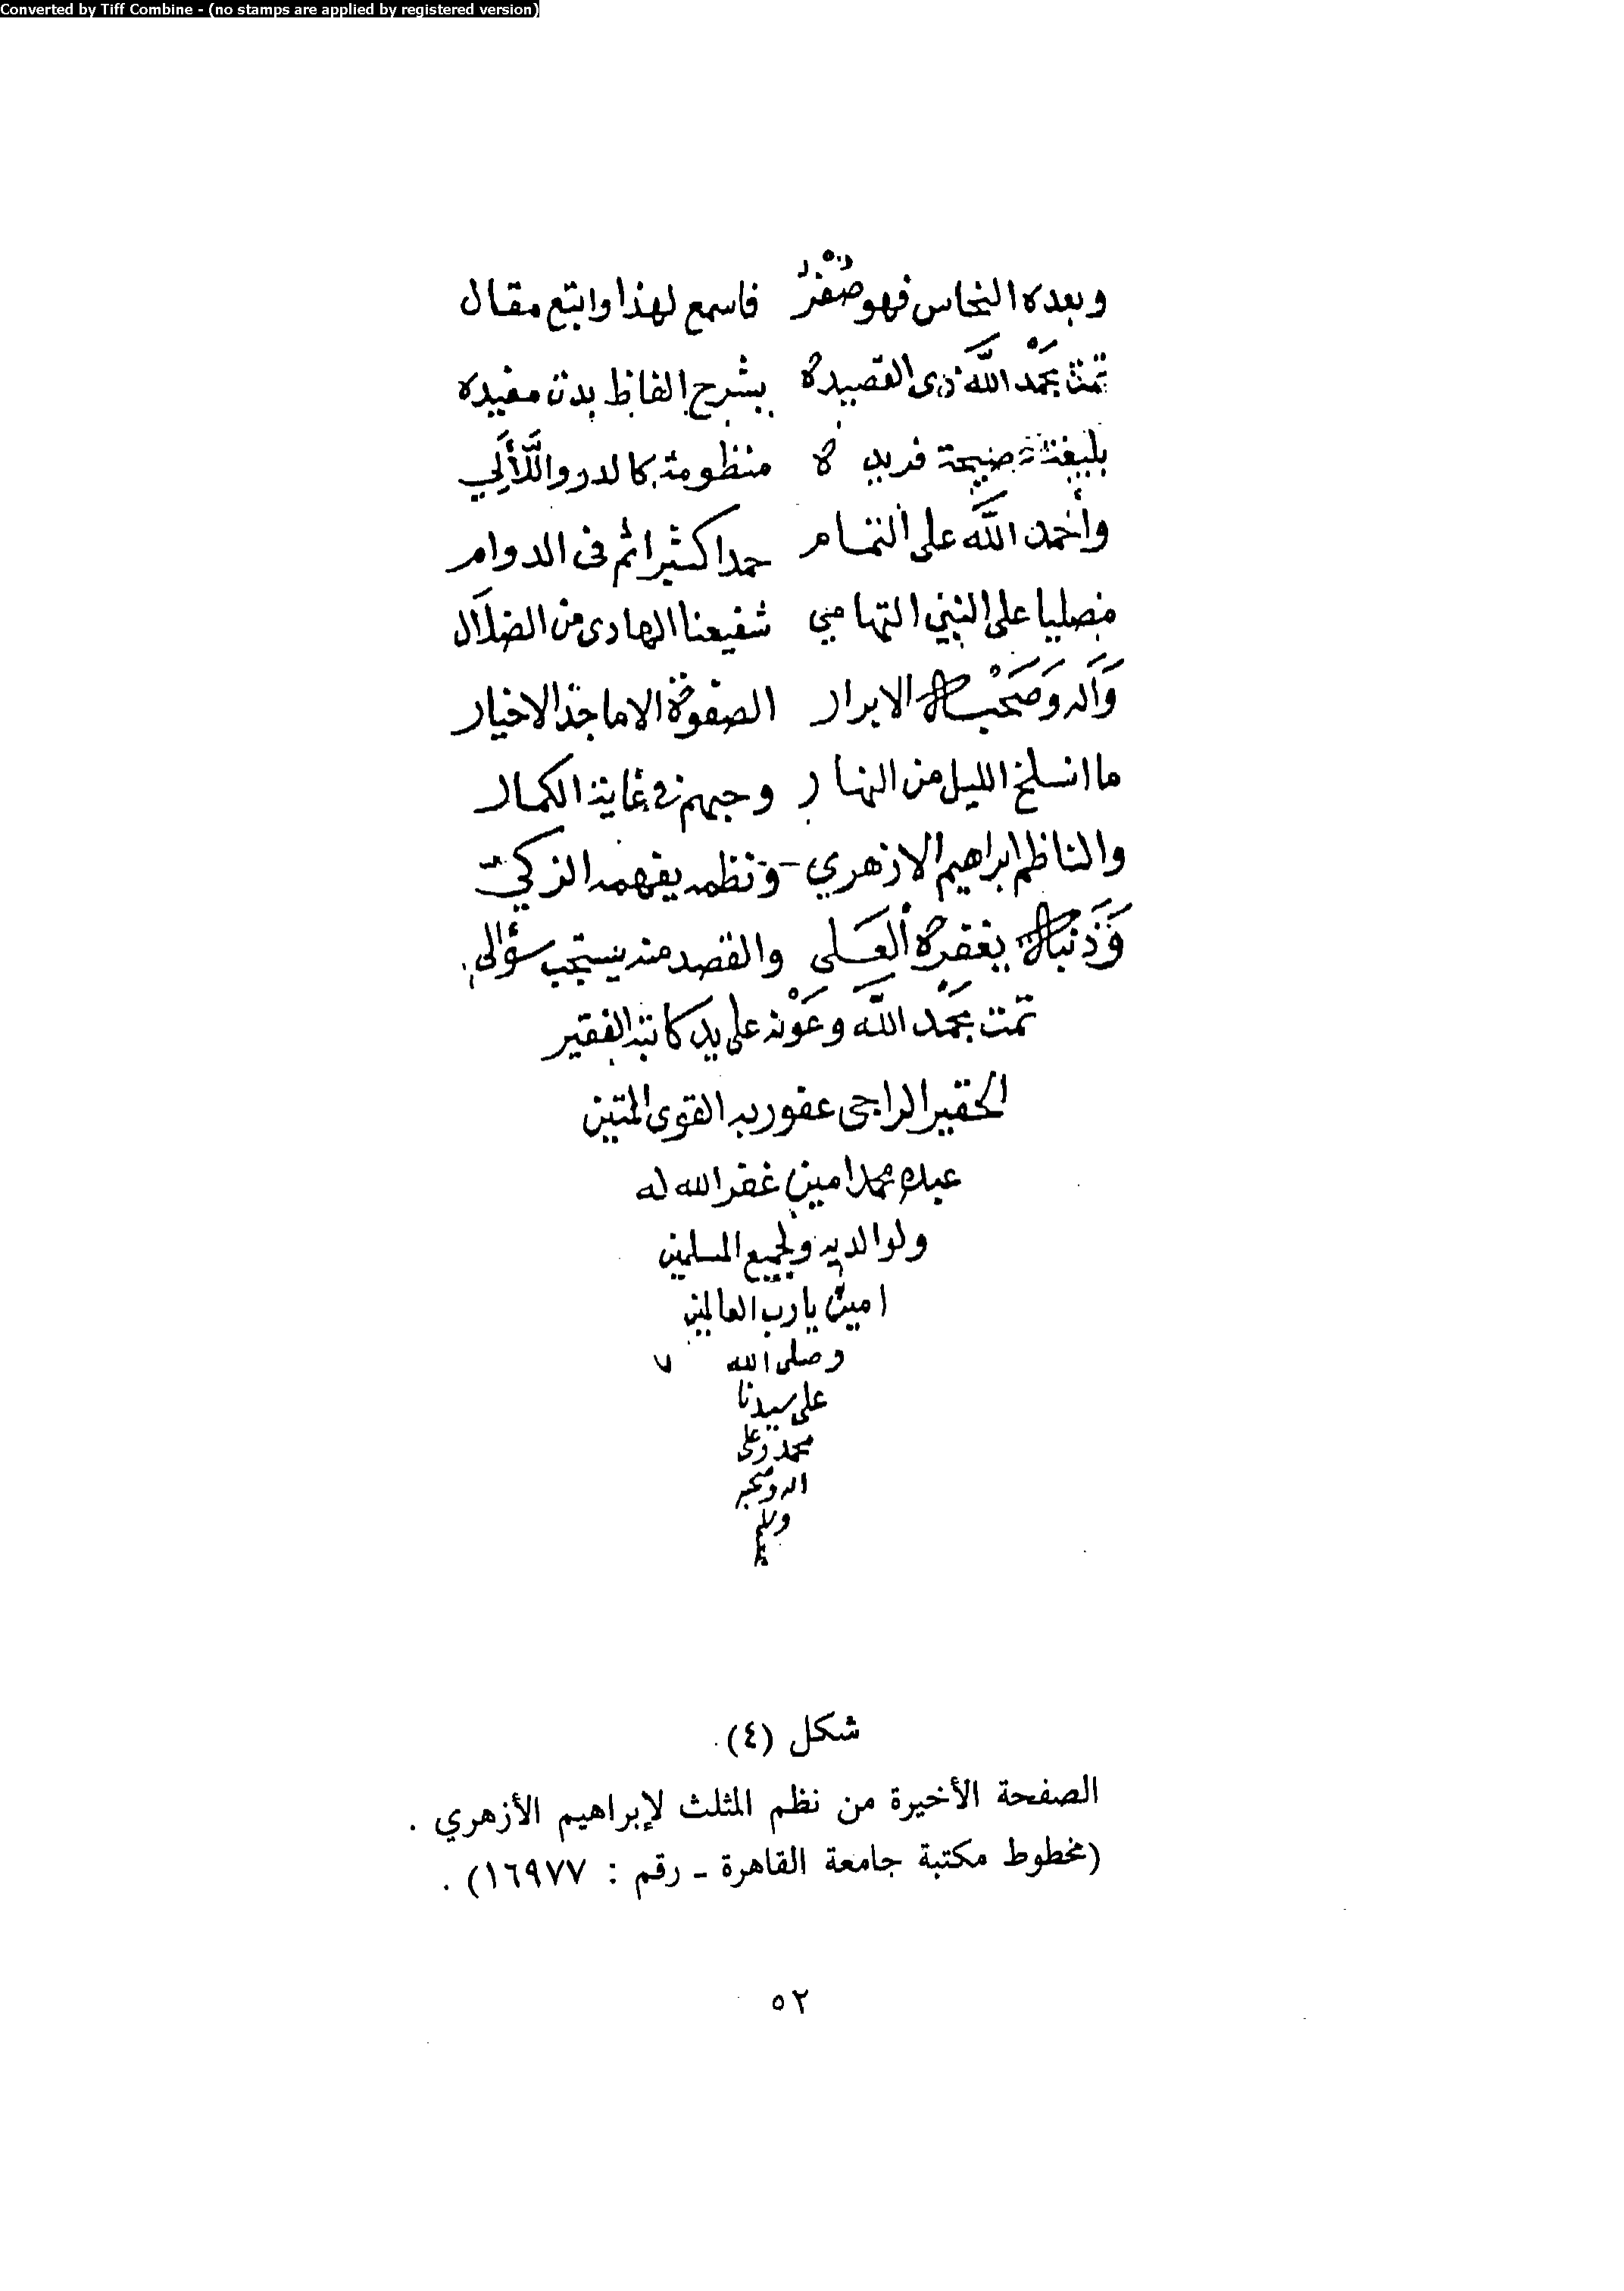 Converted by Tiff Combine - (no stamps are applied by registered version)
وبعده النحاس فهو صُفْرُ فاسمع لهذا واتبع مقال
تمت بحَمْد اللَّه ذى القصيده بشرح الفاظ بدت مفيده
بليغة فصيحة فريده منظومة كالدر واللَّألي
وأحمد اللَّه على التمام حمدا كثيرا ثم فى الدوام
مصليا على النبي التهامي شفيعنا الهادى من الضلال
وَآله وَصَحْبه الابرار الصفوة الاماجد الاخيار
ما انسلخ الليل من النهار وحبهم فى غاية الكمال
والناظم ابراهيم الازهري ونظمه يفهمه الزكي
وَذَنبه يغفره العَلى والقصد منه يستجب سؤالى
تمت بحَمْد اللَّه وعَوْنه على يد كاتبه الفقير
الحقير الراجى عفو ربه القوى المتين
عبده محمد امين غفر الله له
ولوالديه ولجميع المسلمين
امين يا رب العالمين
وصلى الله ٧
على سيدنا
محمد وعلى
اله وصحبه
وسلم
شكل (٤)
الصفحة الأخيرة من نظم المثلث لإبراهيم الأزهري .
(مخطوط مكتبة جامعة القاهرة ـ رقم : ١٦٩٧٧) .
٥٢